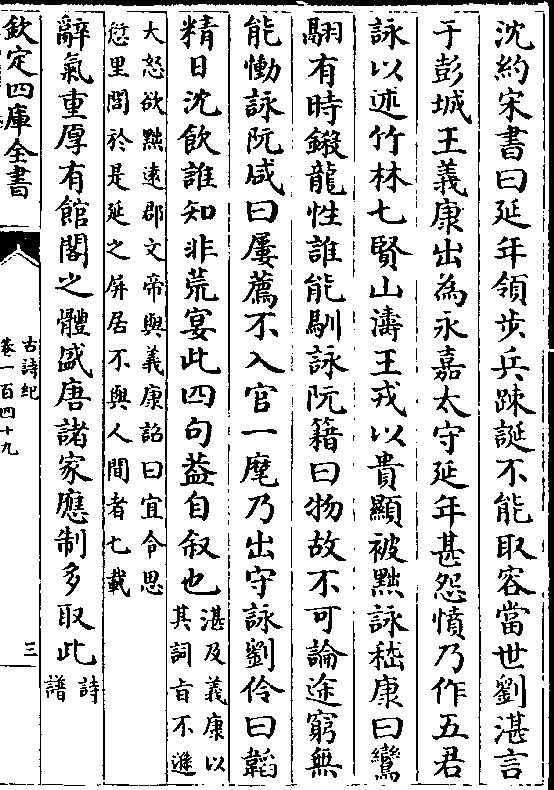 沈約宋書曰延年領歩兵踈誕不能取容當世劉湛言
于彭城王義康出為永嘉太守延年甚怨憤乃作五君
詠以述竹林七賢山濤王戎以貴顯被黜詠嵇康曰鸞
翮有時鎩龍性誰能馴詠阮籍曰物故不可論途窮無
能慟詠阮咸曰屢薦不入官一麾乃出守詠劉伶曰韜
精日沈飲誰知非荒宴此四句葢自叙也湛及義康以
其詞旨不遜
大怒欲黜逺郡文帝與義康詔曰宜令思
愆里閭於是延之屏居不與人間者七載
辭氣重厚有館閣之體盛唐諸家應制多取此詩
譜
欽定四庫全書
古詩紀
卷一百四十九
三